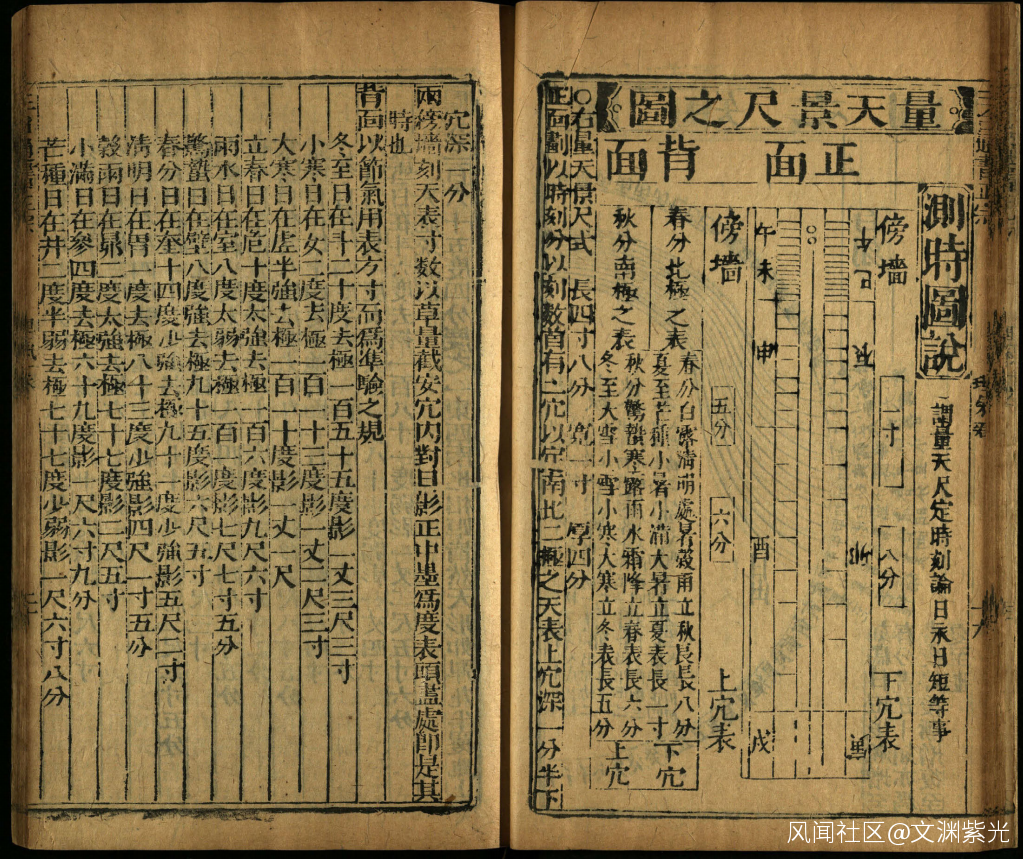 測時圖說
調量天尺定時刻論日永日短等事
量天景尺之圖
正面
背面
傍墻
一寸
八分
下穴表
午
巳
午
未
申
酉
戌
傍墻
五分
六分
上穴表
春分北極之表
春分白露清明處暑穀雨立秋長長八分
夏至芒種小暑小滿大暑立夏表長一寸
下穴
秋分南極之表
秋分驚蟄寒露雨水霜降立春表長六分
冬至大雪小雪小寒大寒立冬表長五分
上穴
○右量天景尺式 長四寸八分 寬一寸 厚四分
正面劃以時刻分以刻數首有二穴以定南北二極之天表上穴深一分半下
穴深一分
兩傍墻刻天表寸數以草量截安穴內對日影正中墨為度表頭盡處即是其
時也
背面以節氣用表方寸而為準驗之規
冬至日在斗二十度去極一百五十五度影一丈三尺三寸
小寒日在女二度去極一百一十三度影一丈二尺三寸
大寒日在虛半強去極一百一十度影一丈一尺
立春日在危十度太強去極一百六度影九尺六寸
雨水日在室八度太弱去極一百一度影七尺七寸五分
驚蟄日在壁八度強去極九十五度影六尺五寸
春分日在奎十四度少強去極九十一度少強影五尺二寸
清明日在胃一度去極八十三度少強影四尺一寸五分
穀雨日在昴二度太強去極七十七度影二尺五寸
小滿日在參四度去極六十九度影一尺六寸九分
芒種日在井二度半弱去極七十七度少弱影一尺六寸八分
风闻社区@文渊紫光